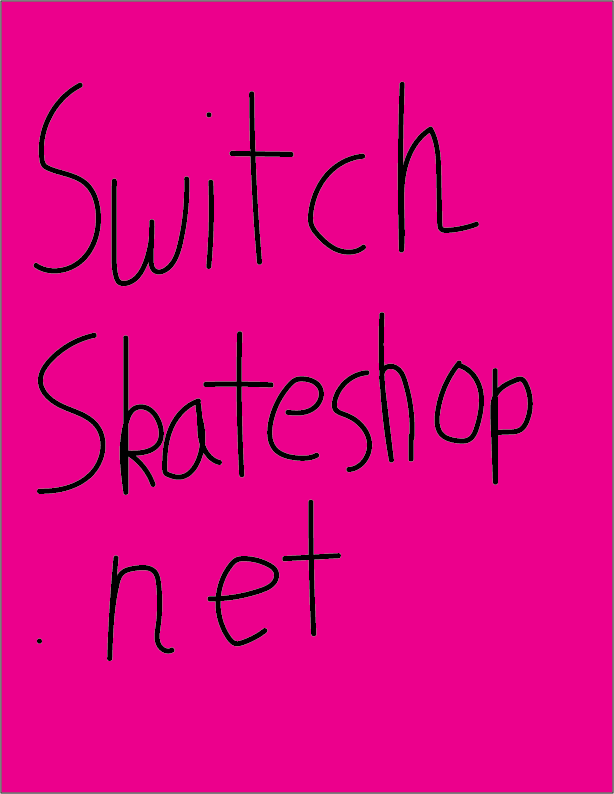 Switch
Skateshop
.net